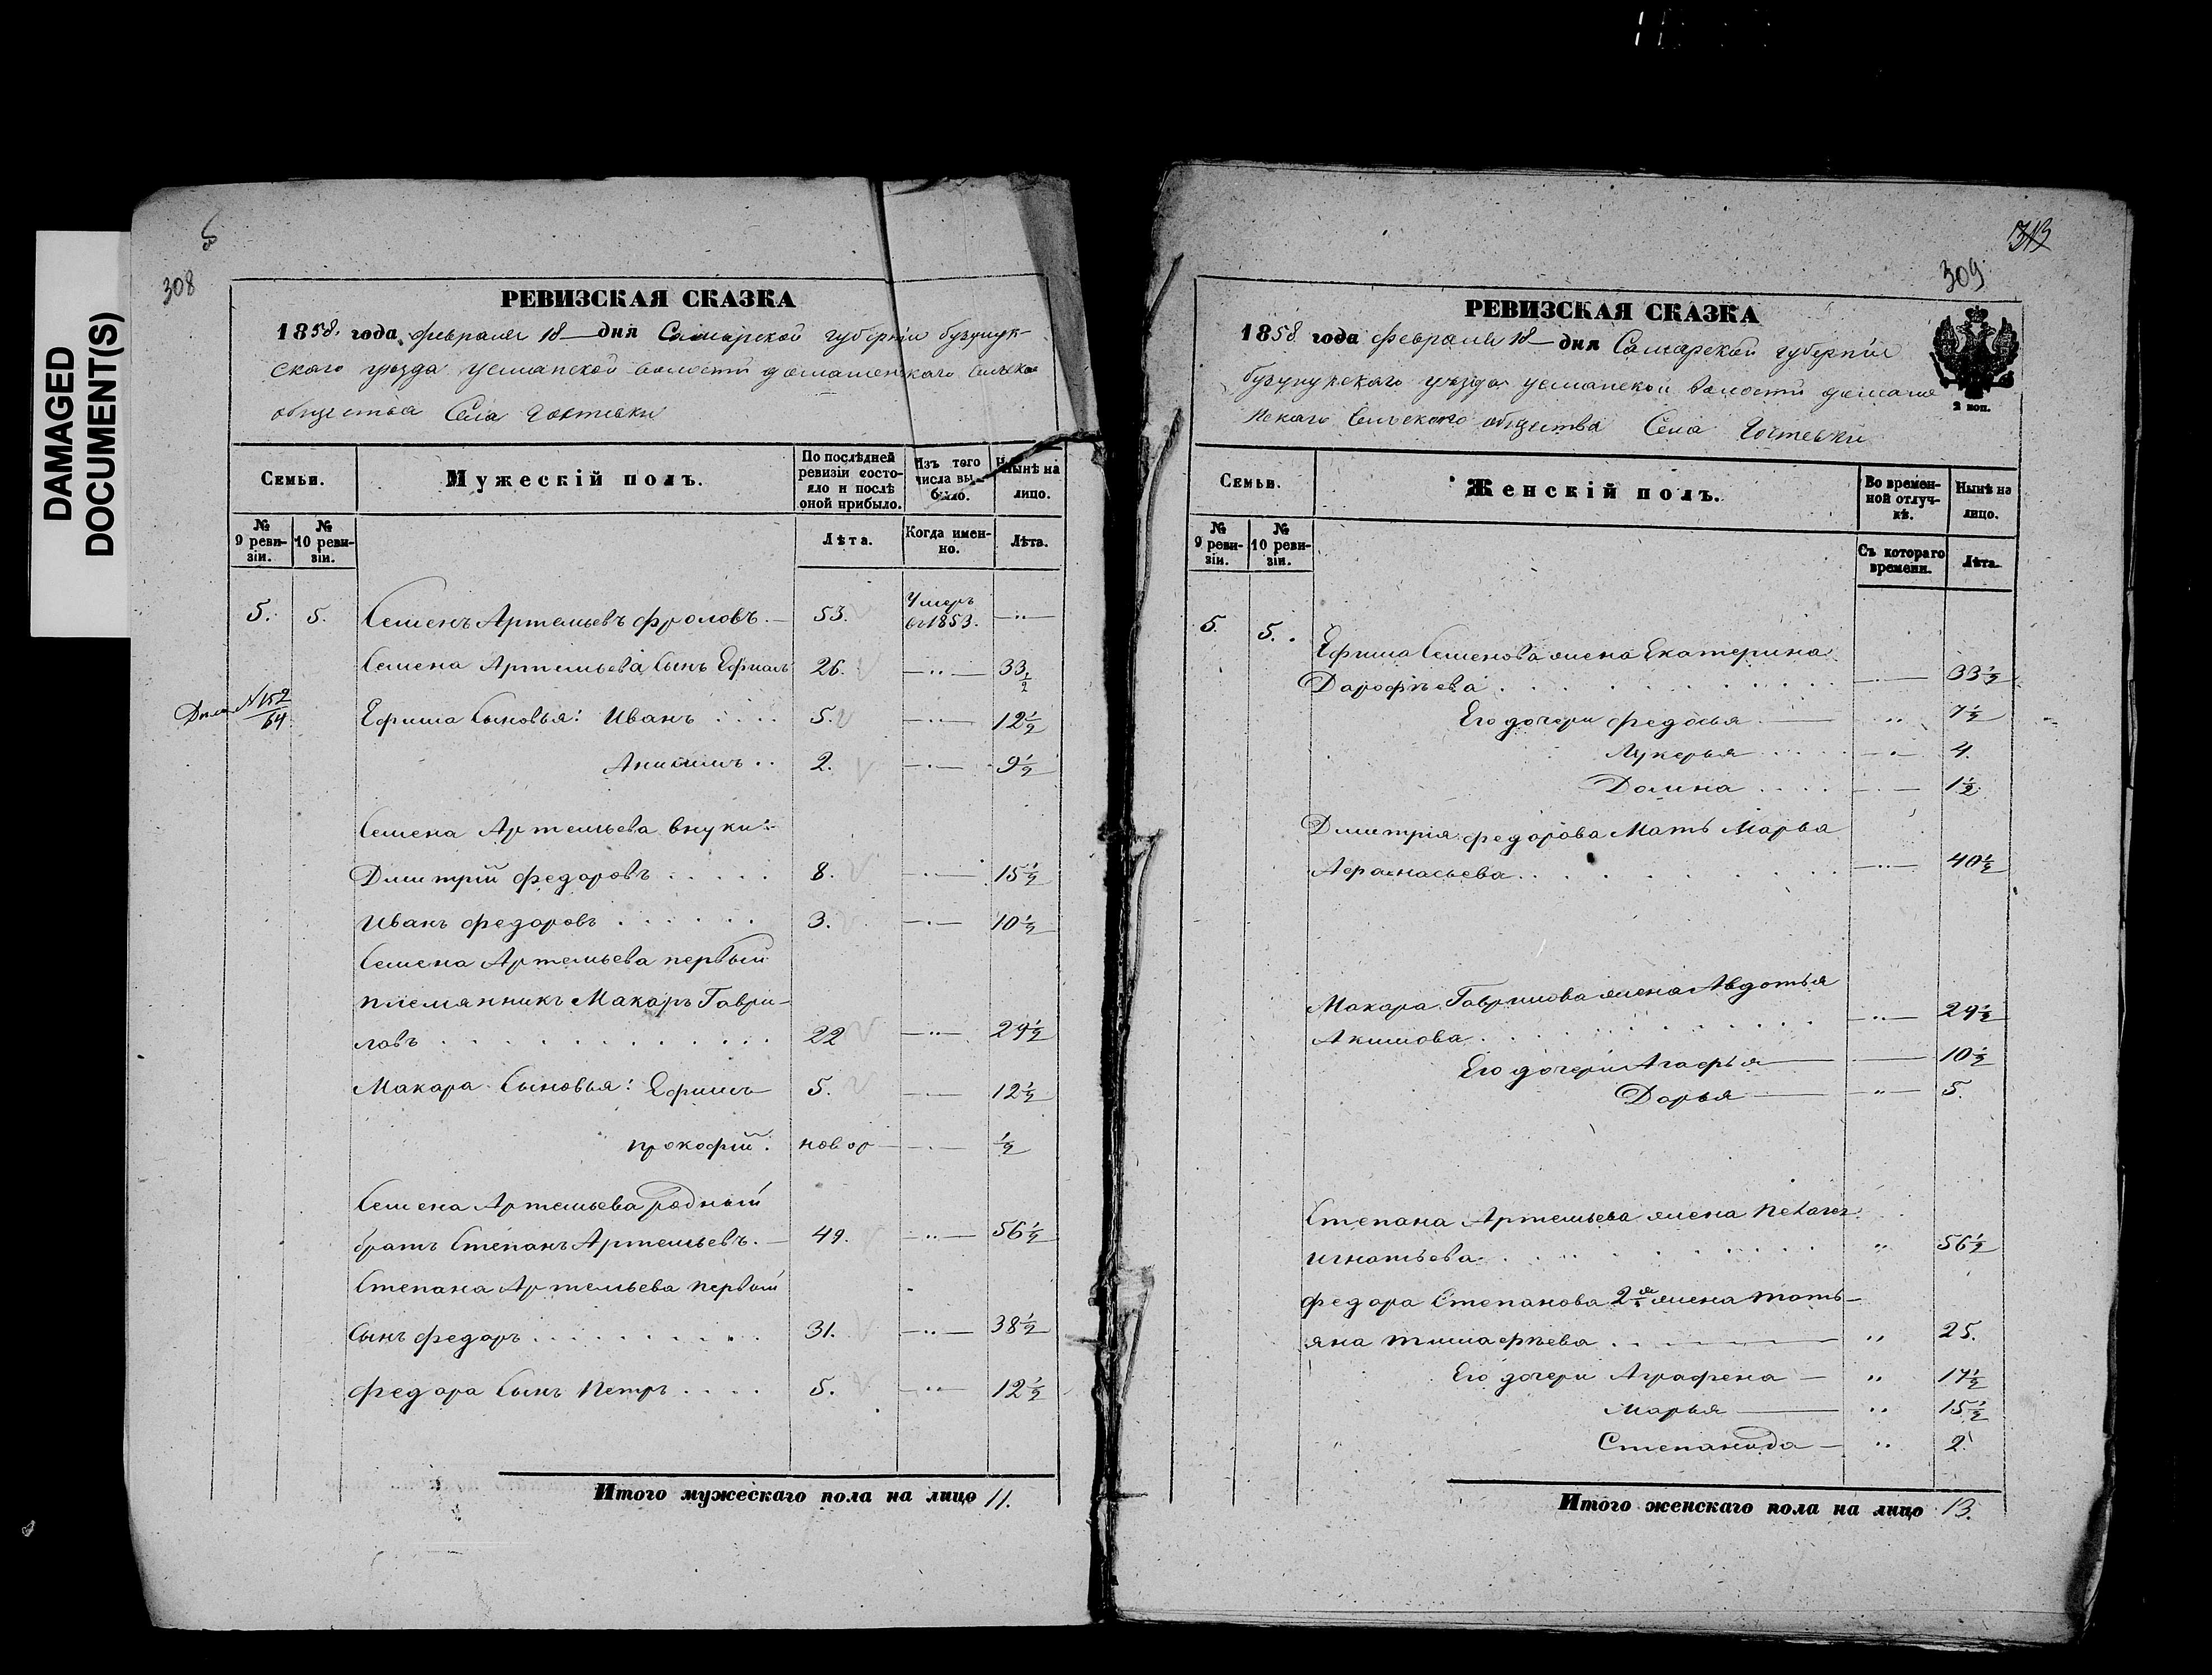 DAMAGED
DOCUMENT(S)
308
РЕВИЗСКАЯ СКАЗКА
1858. года февраля 18 дня Самарской губернiи бузулук-
скаго уезда усманской волости домашенскаго сельскаго
общества Села
Семьи.
Мужескiй полъ.
По послѣдней ревизiи состояло и послѣ оной прибыло.
Изъ того числа выбыло.
Нынѣ на лицо.
№ 9 ревизiи.
№ 10 ревизiи.
Лѣта.
Когда именно.
Лѣта.
5. 5. Семенъ Артемьевъ фроловъ. 53. Умеръ въ 1853. —"—
Семена Артемьева Сынъ Ефимъ 26. —"— 33½
№ 152/64
Ефима Сыновья: Иванъ .... 5. —"— 12½
Аникимъ .. 2. —"— 9½
Семена Артемьева внуки:
Дмитрiй федоровъ ..... 8. —"— 15½
Иванъ федоровъ ...... 3. —"— 10½
Семена Артемьева первый
племянникъ Макаръ Гаври-
ловъ ............. 22 —"— 29½
Макара Сыновья: Ефимъ 5. —"— 12½
прокофiй. новор —"— ½
Семена Артемьева родный
братъ Степанъ Артемьевъ. 49. —"— 56½
Степана Артемьева первый
Сынъ федоръ .......... 31. —"— 38½
федора Сынъ Петръ .... 5. —"— 12½
Итого мужескаго пола на лицо 11.
313
309
РЕВИЗСКАЯ СКАЗКА
2 коп.
1858 года февраля 18 дня Самарской губернiи
бузулукскаго уезда усманской волости домаше
нскаго Сельскаго общества Села
Семьи.
Женскiй полъ.
Во временной отлучкѣ.
Нынѣ на лицо.
№ 9 ревизiи.
№ 10 ревизiи.
Съ котораго времени.
Лѣта.
5. 5. Ефима Семенова жена Екатерина
Дарофѣева ............ —"— 33½
Его дочери федосья " 7½
Лукерья ..... —"— 4.
Домна .... —"— 1½
Дмитрiя федорова Мать Марья
Афанасьева .......... —"— 40½
Макара Гаврилова жена Авдотья
Акимова .......... —"— 29½
Его дочери Агафья — 10½
Дарья —"— 5.
Степана Артемьева жена Пелагея
игнатьева .......... " 56½
федора Степанова 2я жена тать-
яна тимофѣева " 25.
Его дочери Аграфена — " 17½
Марья " 15½
Степанида — " 2.
Итого женскаго пола на лицо 13.